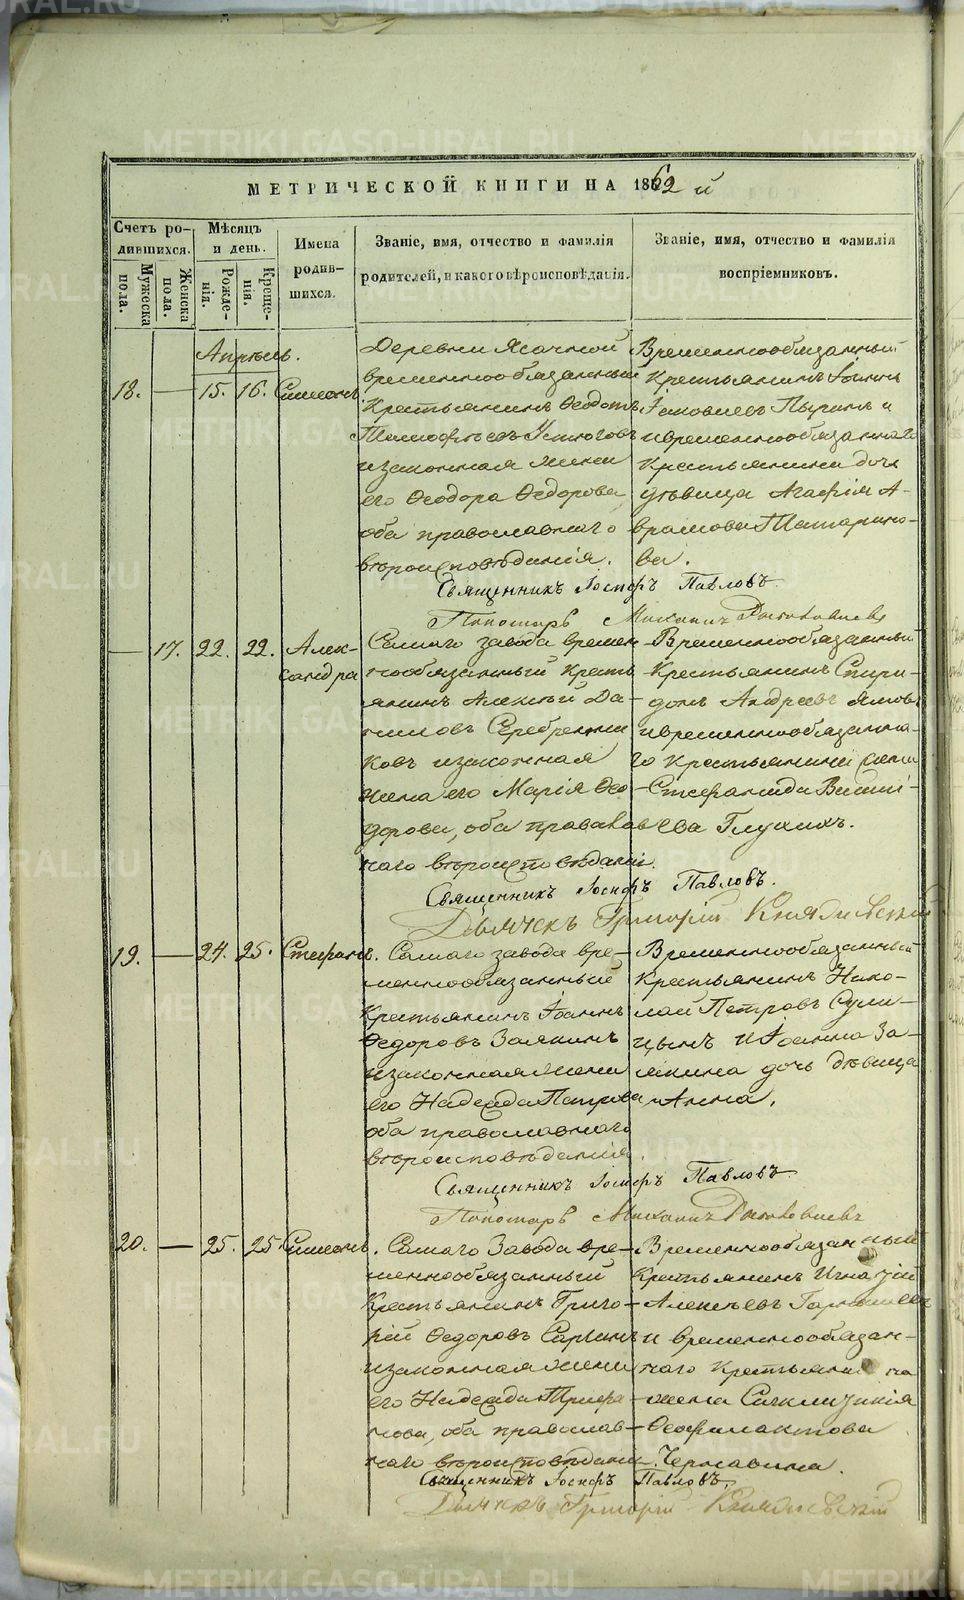 МЕТРИЧЕСКОЙ КНИГИ НА 1862 й
Счетъ ро-
дившихся.
Мужеска
пола.
Женска
пола.
Мѣсяцъ
и день.
Рожде-
нія.
Креще-
нія.
Имена
родив-
шихся.
Званіе, имя, отчество и фамилія
родителей, и какого вѣроисповѣданія.
Званіе, имя, отчество и фамилія
воспріемниковъ.
Апрѣль.
18. — 15. 16. Симеонъ
Деревни Ясачной
временнообязанный
Крестьянинъ Ѳеодотъ
Тимофѣевъ Устюговъ
и законная жена
его Ѳеодора Ѳедорова,
оба православнаго
вѣроисповѣданія.
Временнообязанный
Крестьянинъ Іоаннъ
Іаковлевъ Пыринъ и
временнообязаннаго
Крестьянина дочь
дѣвица Агафія А-
врамова Татарино-
ва.
Священникъ Іосифъ Павловъ.
Пономарь Михаилъ
— 17. 22. 22. Алек-
сандра
Самаго завода времен-
нообязанный Кресть-
янинъ Алексѣй Да-
ниловъ Серебренни-
ковъ и законная
жена его Марія Ѳео-
дорова, оба православ-
наго вѣроисповѣданія.
Временнообязанный
Крестьянинъ Спири-
донъ Андреевъ
и временнообязанна-
го Крестьянина
Стефанида
ева Глухихъ.
Священникъ Іосифъ Павловъ.
Дьячекъ Григорій
19. — 24. 25. Стефанъ.
Самаго завода вре-
меннообязанный
Крестьянинъ Іоаннъ
Ѳедоровъ Заякинъ
и законная жена
его Надежда Петрова
оба православнаго
вѣроисповѣданія.
Временнообязанный
Крестьянинъ Нико-
лай Петровъ Сули-
цынъ и Іоанна За-
якина дочь дѣвица
Анна.
Священникъ Іосифъ Павловъ.
Пономарь Михаилъ
20. — 25. 25. Симеонъ.
Самаго Завода вре-
меннообязанный
Крестьянинъ Григо-
рій Ѳедоровъ
и законная жена
его Надежда Трифо-
нова, оба православ-
наго вѣроисповѣданія.
Временнообязанный
Крестьянинъ Игнатій
Алексѣевъ
и временнообязан-
наго Крестьянина
жена
Ѳеофилактова
Чернавина.
Священникъ Іосифъ Павловъ.
Дьячекъ Григорій
METRIKI.GASO-URAL.RU